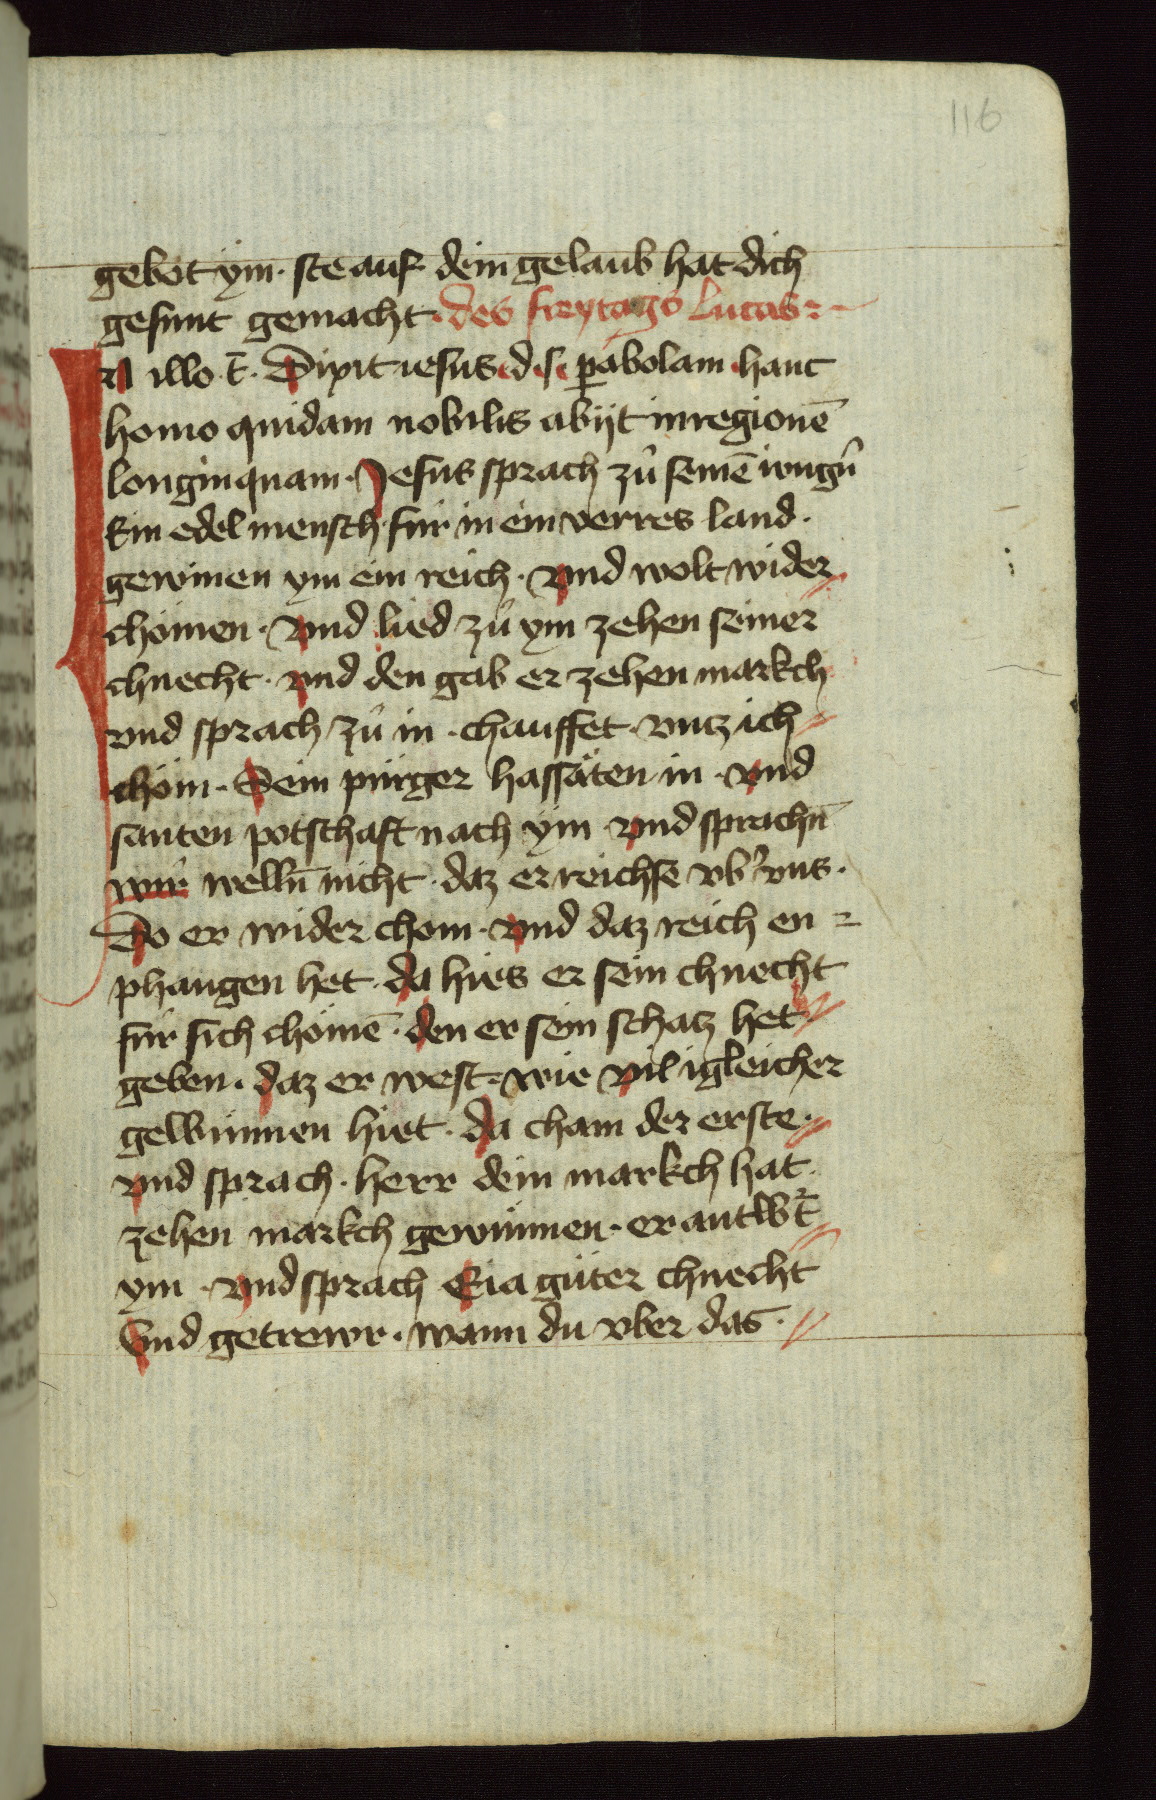 116
gebot ym · ste auf dein gelaub hat dich
gesunt gemacht · des freytags lucas
In illo t̄ · Dixit iesus · d · s · pabolam hanc
homo quidam nobilis abijt in regionē
longinquam · Jesus sprach zů seinē iungn̄
Ein edel mensch fur in ein verres land ·
gewinen ym ein reich · vnd wolt wider
chömen · vnd lied zů ym zehen seiner
chnecht · vnd den gab er zehen markch
vnd sprach zů in · chauffet · vntz ich
chöm · Sein pürger hassäten in · vnd
santen potschaft nach ym vnd sprachn̄
wir welln̄ nicht · daz er reichse vb' vns ·
Do er wider chom · vnd daz reich en
phangen het · da hies er sein chnecht
für sich chömē · den er sein schatz het
geben · daz er west · wie vil igleicher
gewunnen hiet · da cham der erste ·
vnd sprach · herr dein markch hat ·
zehen markch gewunnen · er antwt̄
ym · vnd sprach Eia güter chnecht
Vnd getrewr · wann du vber das ·